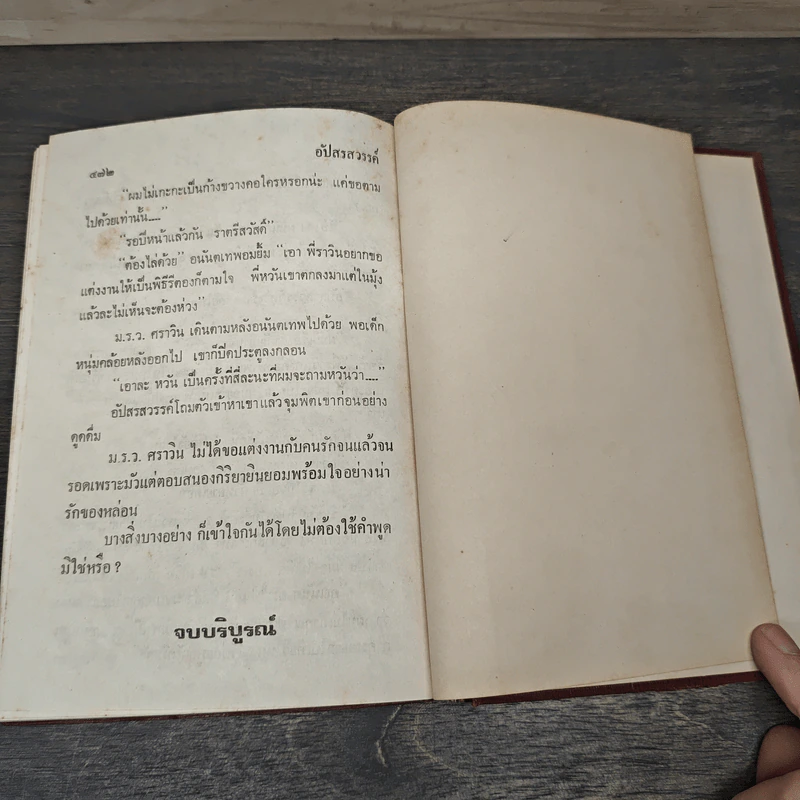 ๔๗๒
อัปสรสวรรค์
“ผมไม่เกะกะเป็นก้างขวางคอใครหรอกน่ะ แค่ขอตาม
ไปด้วยเท่านั้น....”
“รอบีหน้าแล้วกัน ราตรีสวัสดิ์”
“ต้องไล่ด้วย” อนันตเทพอมยิ้ม “เอา พี่ราวินอยากขอ
แต่งงานให้เป็นพิธีรีตองก็ตามใจ พี่หวันเขาตกลงมาแต่ในมุ้ง
แล้วละไม่เห็นจะต้องห่วง”
ม.ร.ว. ศราวิน เดินตามหลังอนันตเทพไปด้วย พอเด็ก
หนุ่มคล้อยหลังออกไป เขาก็ปิดประตูลงกลอน
“เอาละ หวัน เป็นครั้งที่สี่ละนะที่ผมจะถามหวันว่า....”
อัปสรสวรรค์โถมตัวเข้าหาเขาแล้วจุมพิตเขาก่อนอย่าง
ดูดดื่ม
ม.ร.ว. ศราวิน ไม่ได้ขอแต่งงานกับคนรักจนแล้วจน
รอดเพราะมัวแต่ตอบสนองกิริยายินยอมพร้อมใจอย่างน่า
รักของหล่อน
บางสิ่งบางอย่าง ก็เข้าใจกันได้โดยไม่ต้องใช้คำพูด
มิใช่หรือ ?
จบบริบูรณ์